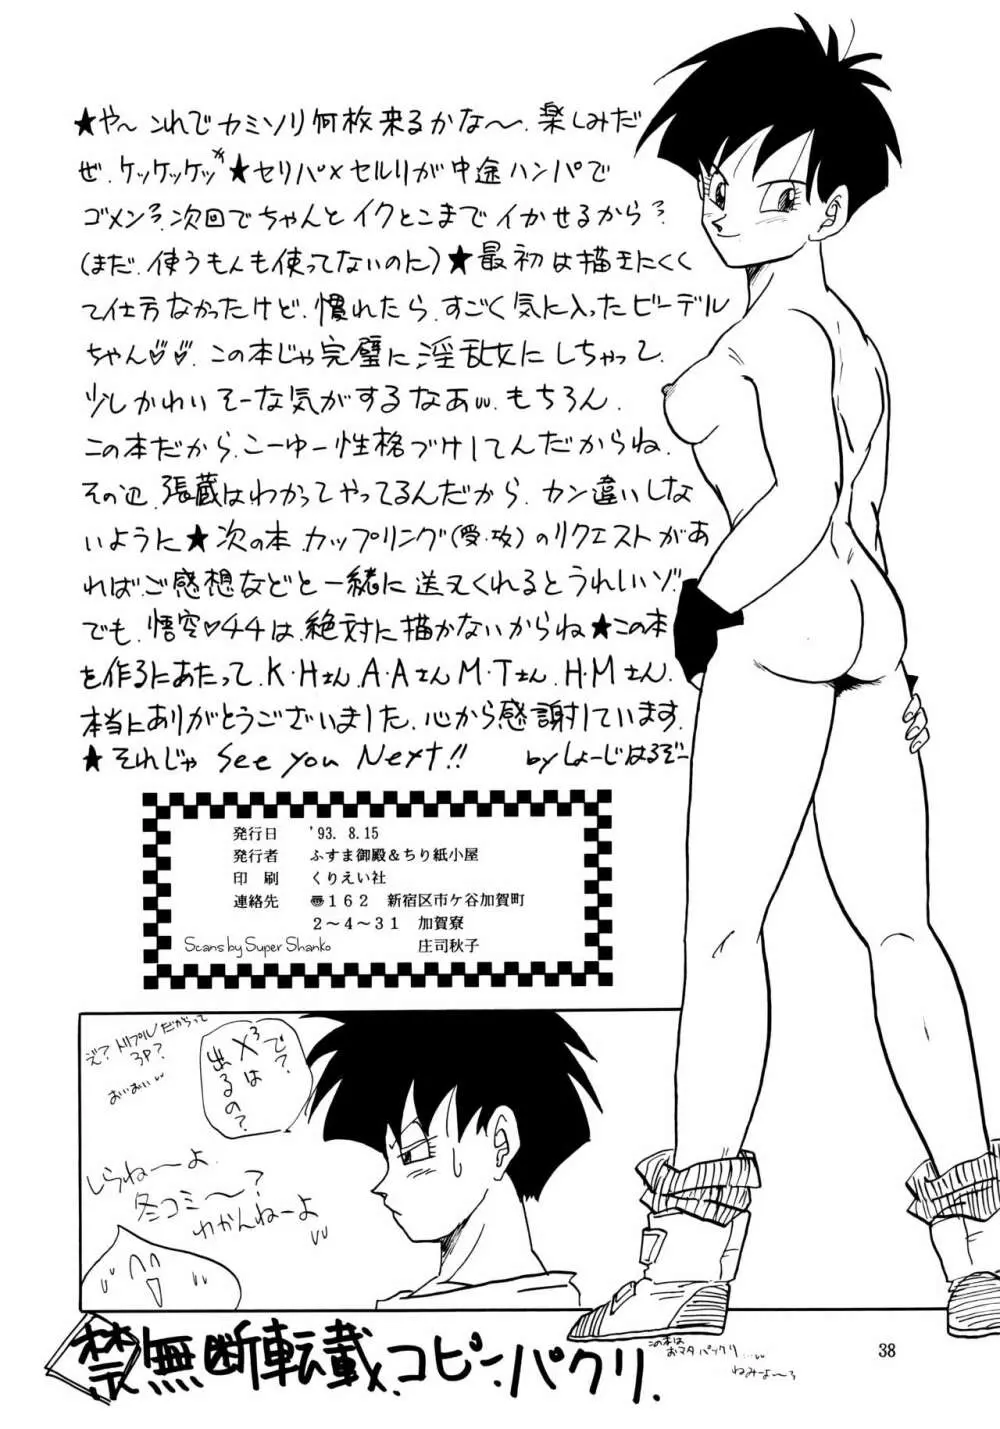 ★や〜 これでカミソリ何枚来るかな〜、楽しみだ
ぜ、ケッケッケッ★セリパ×セルリが中途ハンパで
ゴメン?次回でちゃんとイクとこまでイかせるから?
(まだ、使うもんも使ってないのに)★最初は描きにくく
て仕方なかったけど、慣れたら、すごく気に入ったビーデル
ちゃん♡♡、この本じゃ完璧に淫乱女にしちゃって、
少しかわいそーな気がするなあw、もちろん、
この本だから、こーゆー性格づけしてんだからね、
その辺、張蔵はわかってやってるんだから、カン違いしない
ないように★次の本、カップリング(受・攻)のリクエストがあ
ればご感想などと一緒に送ってくれるとうれしいゾ
でも、悟空♡44は、絶対に描かないからね★この本
を作るにあたって、K・Hさん、A・Aさん M・Tさん、H・Mさん、
本当にありがとうございました、心から感謝しています、
★それじゃ See you Next!!　by しょーじはるぞー
発行日　'93. 8.15
発行者　ふすま御殿&ちり紙小屋
印　刷　くりえい社
連絡先　〠162　新宿区市ケ谷加賀町
2〜4〜31　加賀寮
庄司秋子
Scans by Super Shanko
え?トリプルだからって
3P?
おいおい
で?
X³は
出るの?
しらねーよ
冬コミ〜?
わかんねーよ
禁無断転載、コピー、パクリ、
この本は
おマタパックリ…
ねみよ〜
38